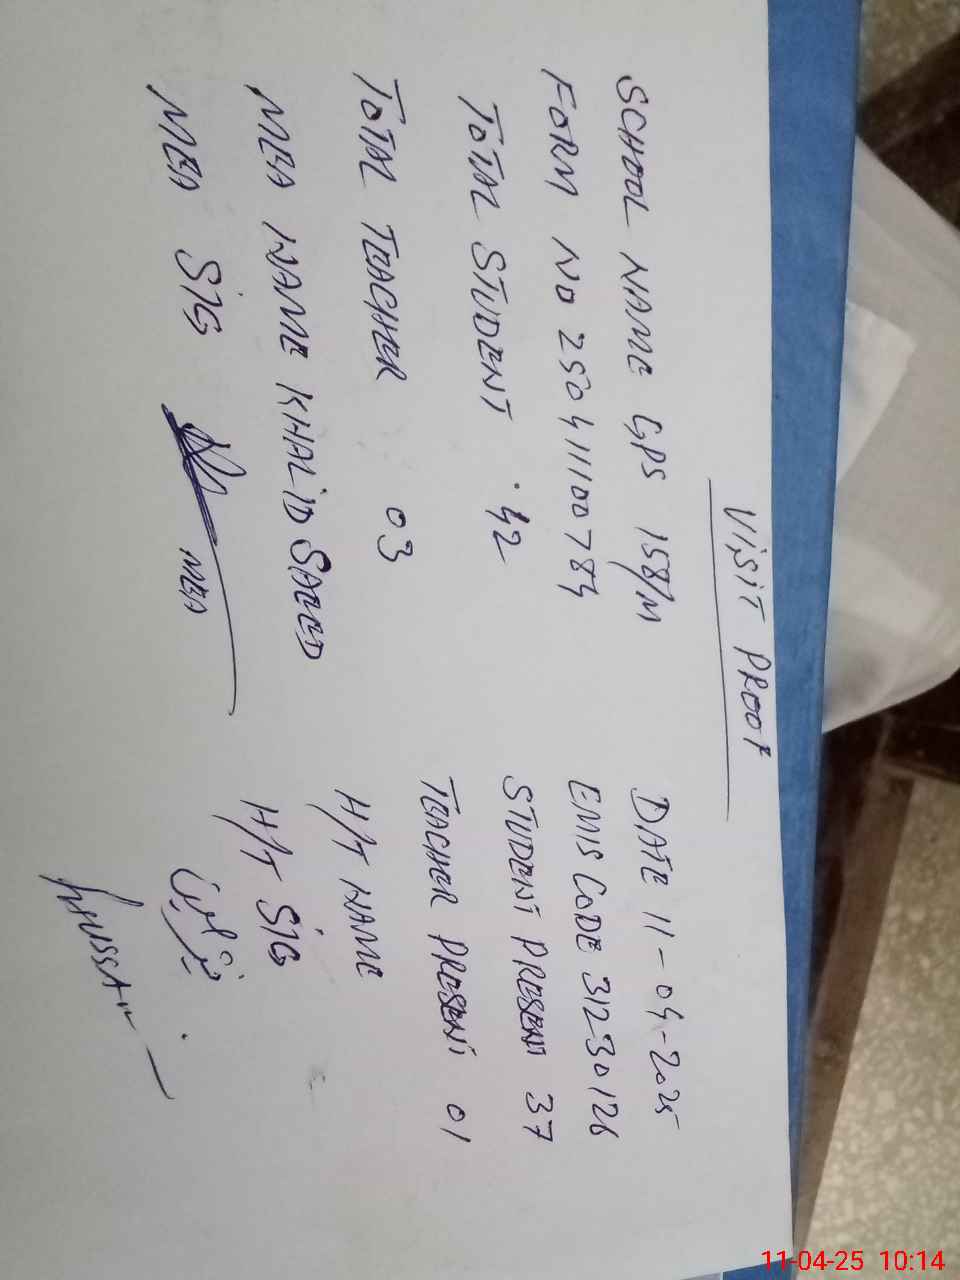 VISIT PROOF
SCHOOL NAME GPS 158/M DATE 11-04-2025
FORM NO 250411100784 EMIS CODE 31230126
TOTAL STUDENT 42 STUDENT PRESENT 37
TOTAL TEACHER 03 TEACHER PRESENT 01
MEA NAME KHALID SAEED H/T NAME
MEA SIG H/T SIG
MEA
HUSSAIN
11-04-25 10:14